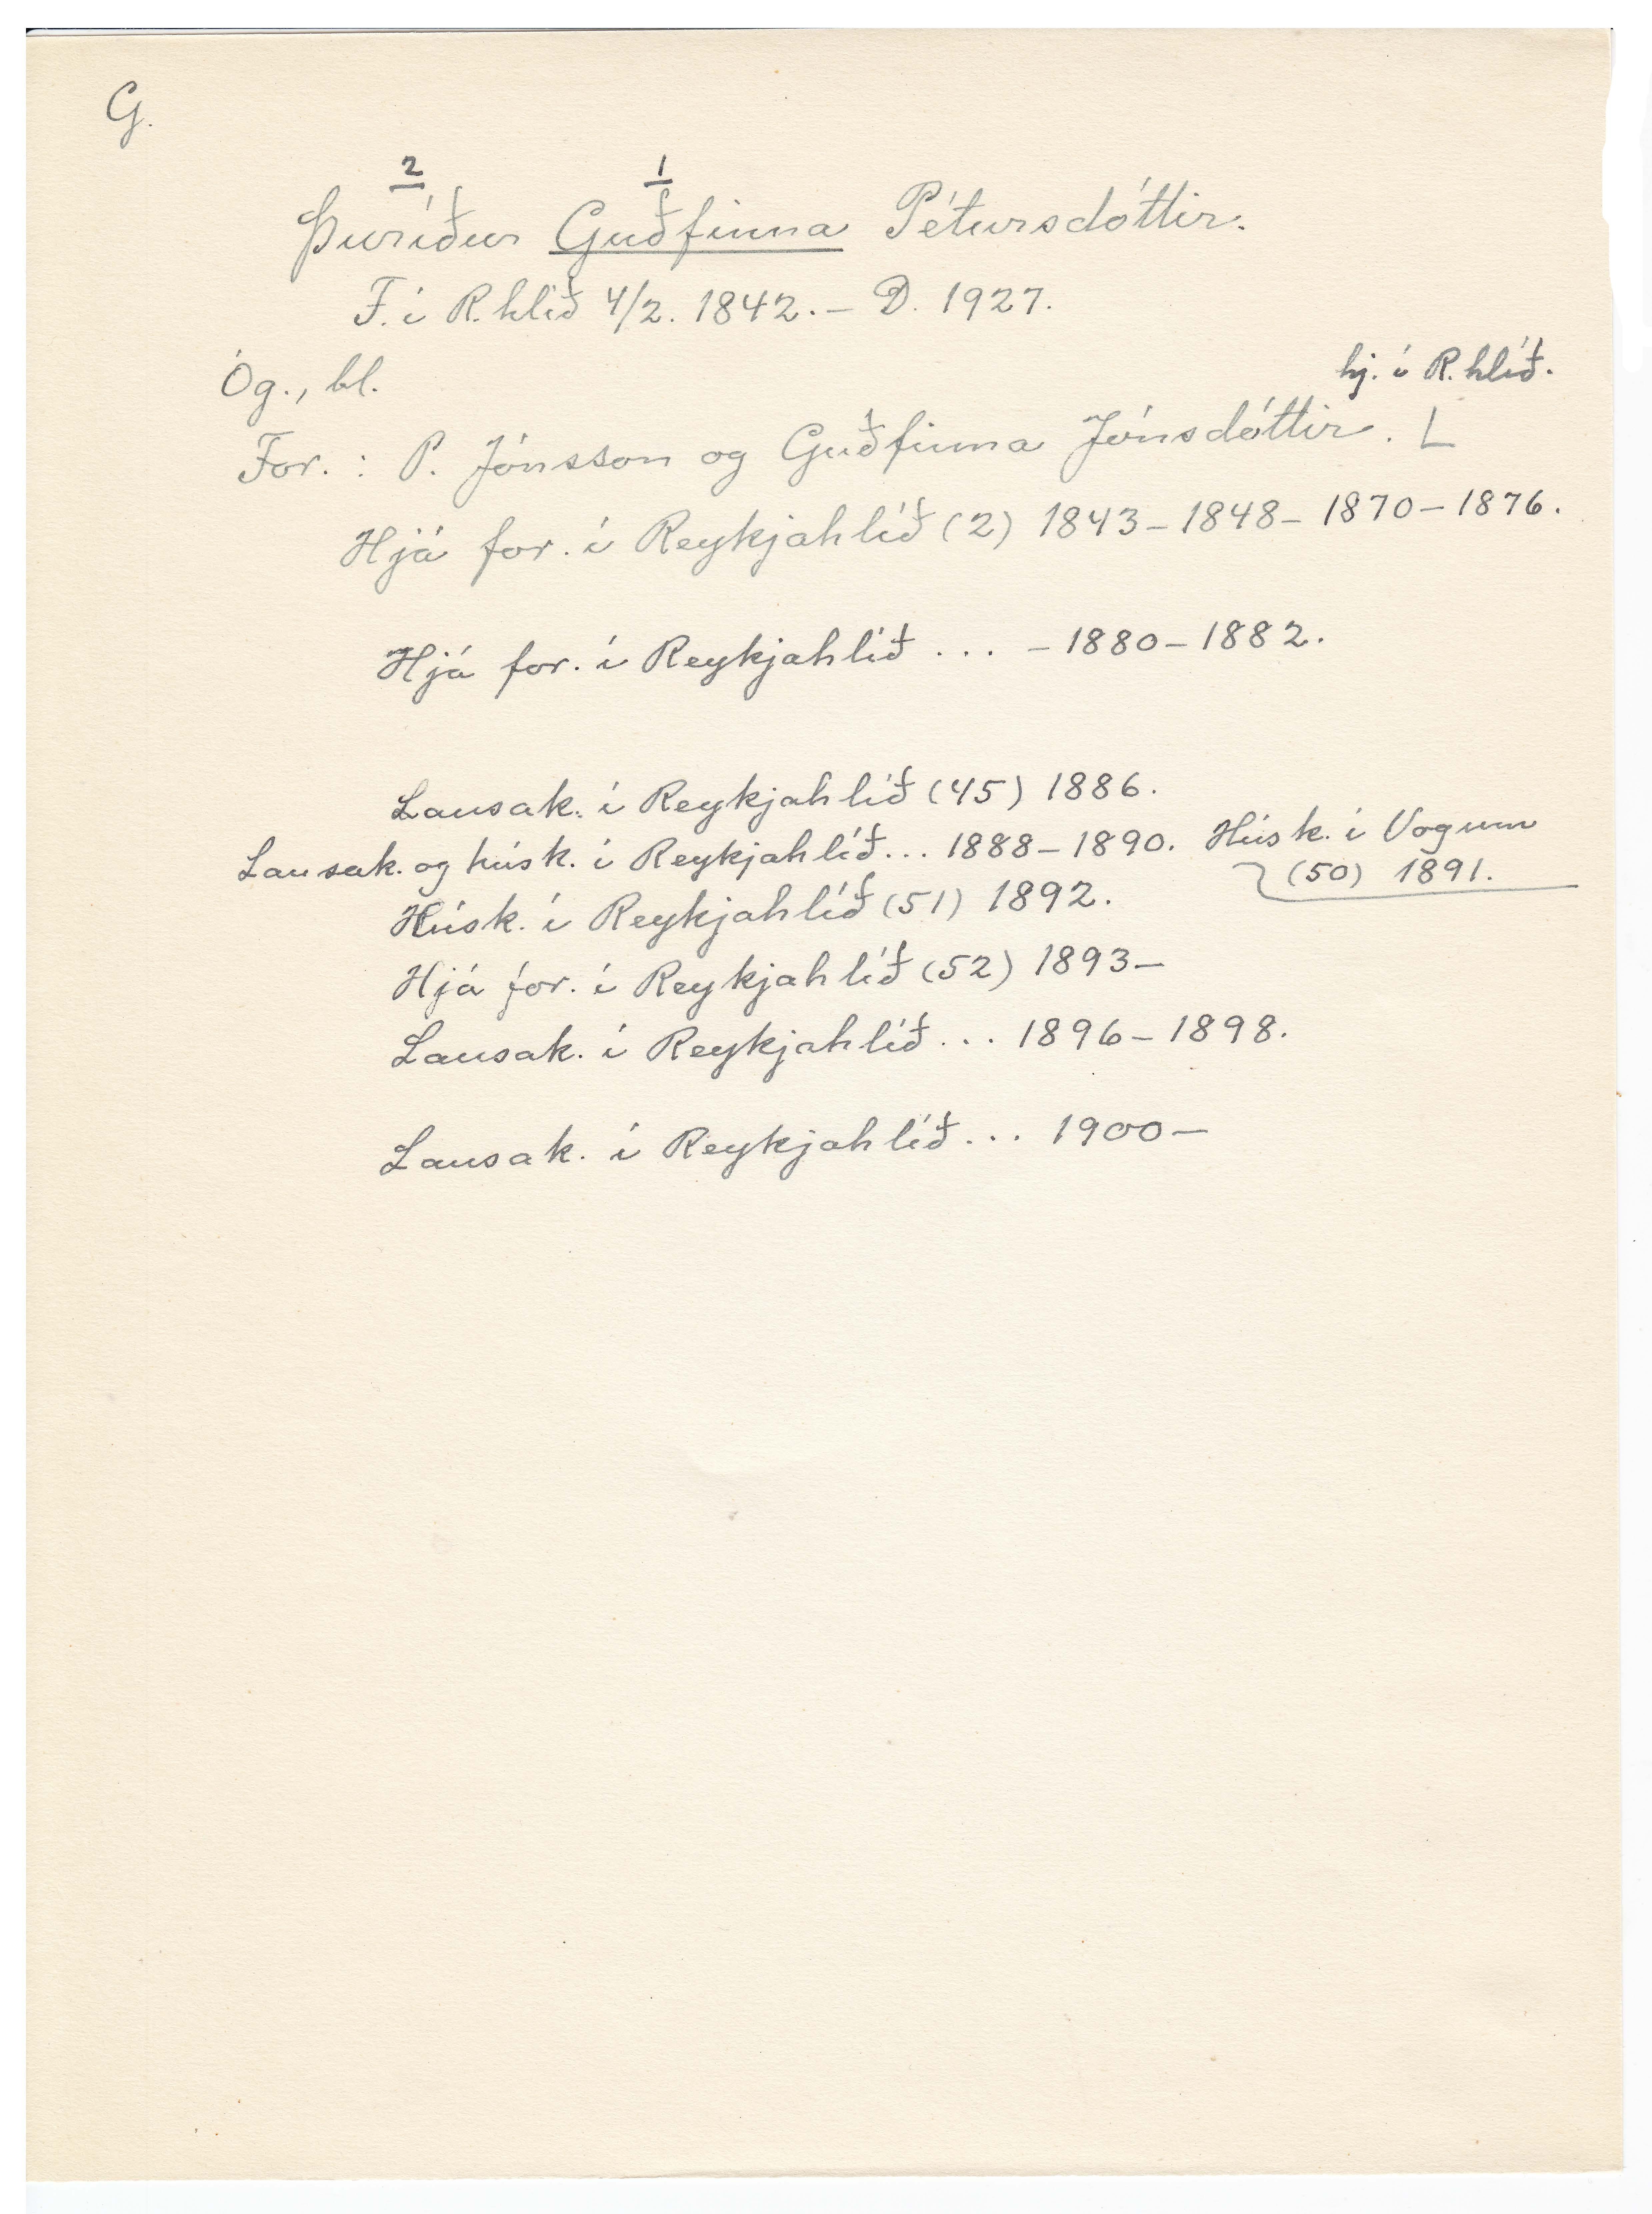 G.
2 1
Þuríður Guðfinna Pétursdóttir.
F. í R.hlíð 4/2. 1842. – D. 1927.
Óg., bl.
hj. í R.hlíð.
For. : P. Jónsson og Guðfinna Jónsdóttir. L
Hjá for. í Reykjahlíð (2) 1843 – 1848 – 1870 – 1876.
Hjá for. í Reykjahlíð ... – 1880 – 1882.
Lausak. í Reykjahlíð (45) 1886.
Lausak. og húsk. í Reykjahlíð ... 1888 – 1890. Húsk. í Vogum
(50) 1891.
Húsk. í Reykjahlíð (51) 1892.
Hjá for. í Reykjahlíð (52) 1893 –
Lausak. í Reykjahlíð ... 1896 – 1898.
Lausak. í Reykjahlíð ... 1900 –